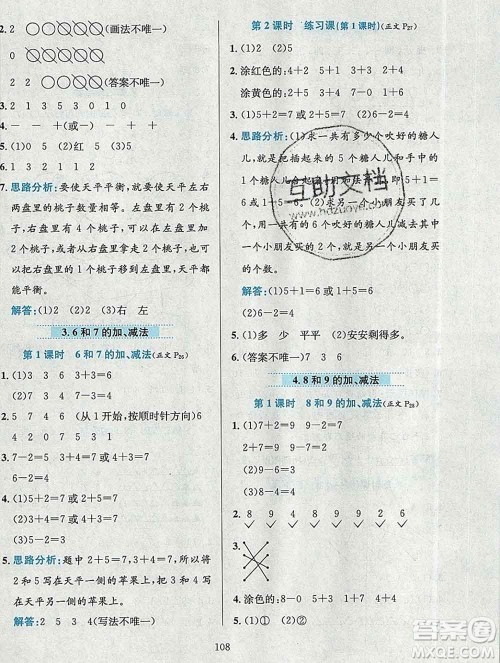 2 ○○○○∅∅ (画法不唯一)
0 ∅∅∅∅∅∅
2 ○○∅∅∅∅ (答案不唯一)
2. 1 2 3 1 3 4
4. － － ＋(或－) ＋
5. (1)0 (2)红 5
6. 1 3 2 1 1
7. 思路分析：要使天平平衡，就要使天平左右
两盘里的桃子数量相等。左盘里有2个桃
子，右盘里有4个桃子，可以向左盘里放2
个桃子，右盘不动；也可以左盘里的桃子数
量不变，从右盘里拿走2个桃子；还可以从
右盘拿1个桃子移动到左盘，这样天平都
能平衡。
解答：(1)2 (2)2 (3)右 左
3.6和7的加、减法
第1课时 6和7的加、减法(正文P₂₆)
1. 2 4 7 3 3+3=6
2. 5 7 4 6 (从1开始按顺时针方向)
3. 6 7 7 2 6 3
4. (1)5+2=7或2+5=7
7-2=5
(2)7-3=4
(3)3+4=7或4+3=7
7-3=4
5. 思路分析：题中2+5=7，3+4=7，所以将
2和5写在天平一侧的苹果上，将3和4写
在天平另一侧的苹果上。
解答：2 5 3 4 (写法不唯一)
第2课时 练习课(第1课时)(正文P₂₇)
1. (1)2 (2)5
2. 涂红色的：4+2 5+1 3+3 2+4
涂黄色的：5+2 3+4 6+1
3. 6 7 5 7 3 4
4. 思路分析：(1)求一共有多少个吹好的糖
人儿，就是把插起来的5个糖人儿和正在
(3)用一共有的6个吹好的糖人儿减去其中
一个小朋友买的个数就是另一个小朋友买
的个数。
解答：(1)5+1=6 (2)6-2=4
5. (1)多 少 平 平 (2)安安剩得多。
6. (答案不唯一)
4.8和9的加、减法
第1课时 8和9的加、减法(正文P₂₈)
1. (1)7+2=9 2+7=9 9-2=7
9-7=2
(2)8-4=4
(3)9-3=6
2. 4 8 6 5 9 9 0 8
✓ ✓ ✓ ✓ ✓ ✓
3.
4. 涂色的：8-0 5+3 9-1
5. (1)① (2)①
互助文档
www.hdzuoye.com
作业帮
MXQE.COM
108